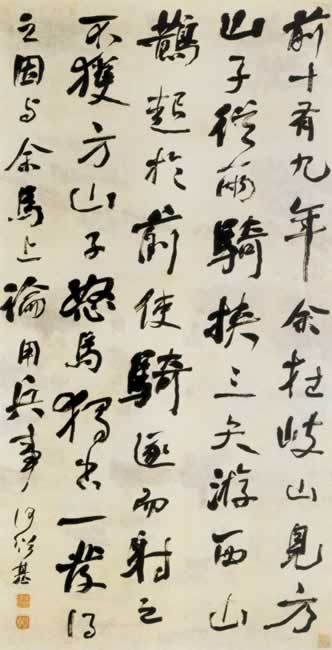 前十有九年余在岐山見方
山子從兩騎挾三矢游西山
鵲起於前使騎逐而射之
不獲方山子怒馬獨出一發得
之因与余馬上論用兵事 何紹基